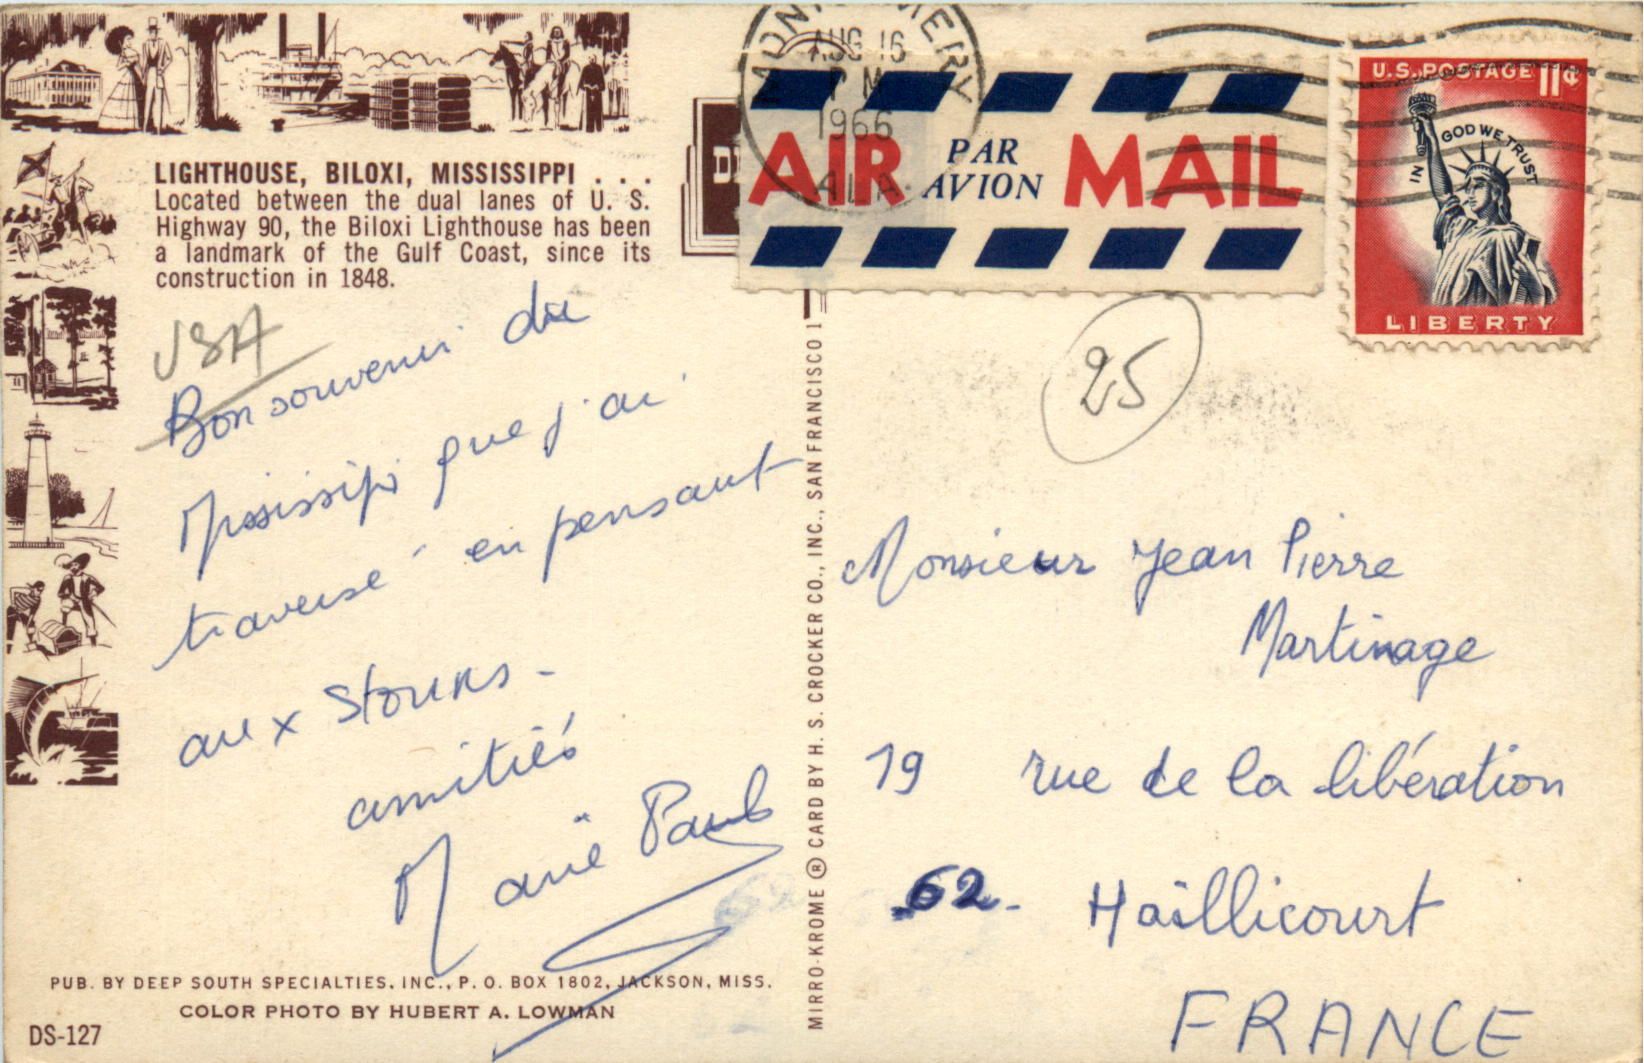 LIGHTHOUSE, BILOXI, MISSISSIPPI . . .
Located between the dual lanes of U. S.
Highway 90, the Biloxi Lighthouse has been
a landmark of the Gulf Coast, since its
construction in 1848.
USA
Bon souvenir du
Mississipi que j'ai
traversé en pensant
aux Stouns -
amitiés
Marie Paule
PUB. BY DEEP SOUTH SPECIALTIES, INC., P. O. BOX 1802, JACKSON, MISS.
COLOR PHOTO BY HUBERT A. LOWMAN
DS-127
MIRRO-KROME ® CARD BY H. S. CROCKER CO., INC., SAN FRANCISCO 1
MONTGOMERY
AUG 16
PM
1966
ALA.
AIR PAR AVION MAIL
U.S. POSTAGE 11¢
IN GOD WE TRUST
LIBERTY
25
Monsieur Jean Pierre
Martinage
19 rue de la libération
62. Haillicourt
FRANCE